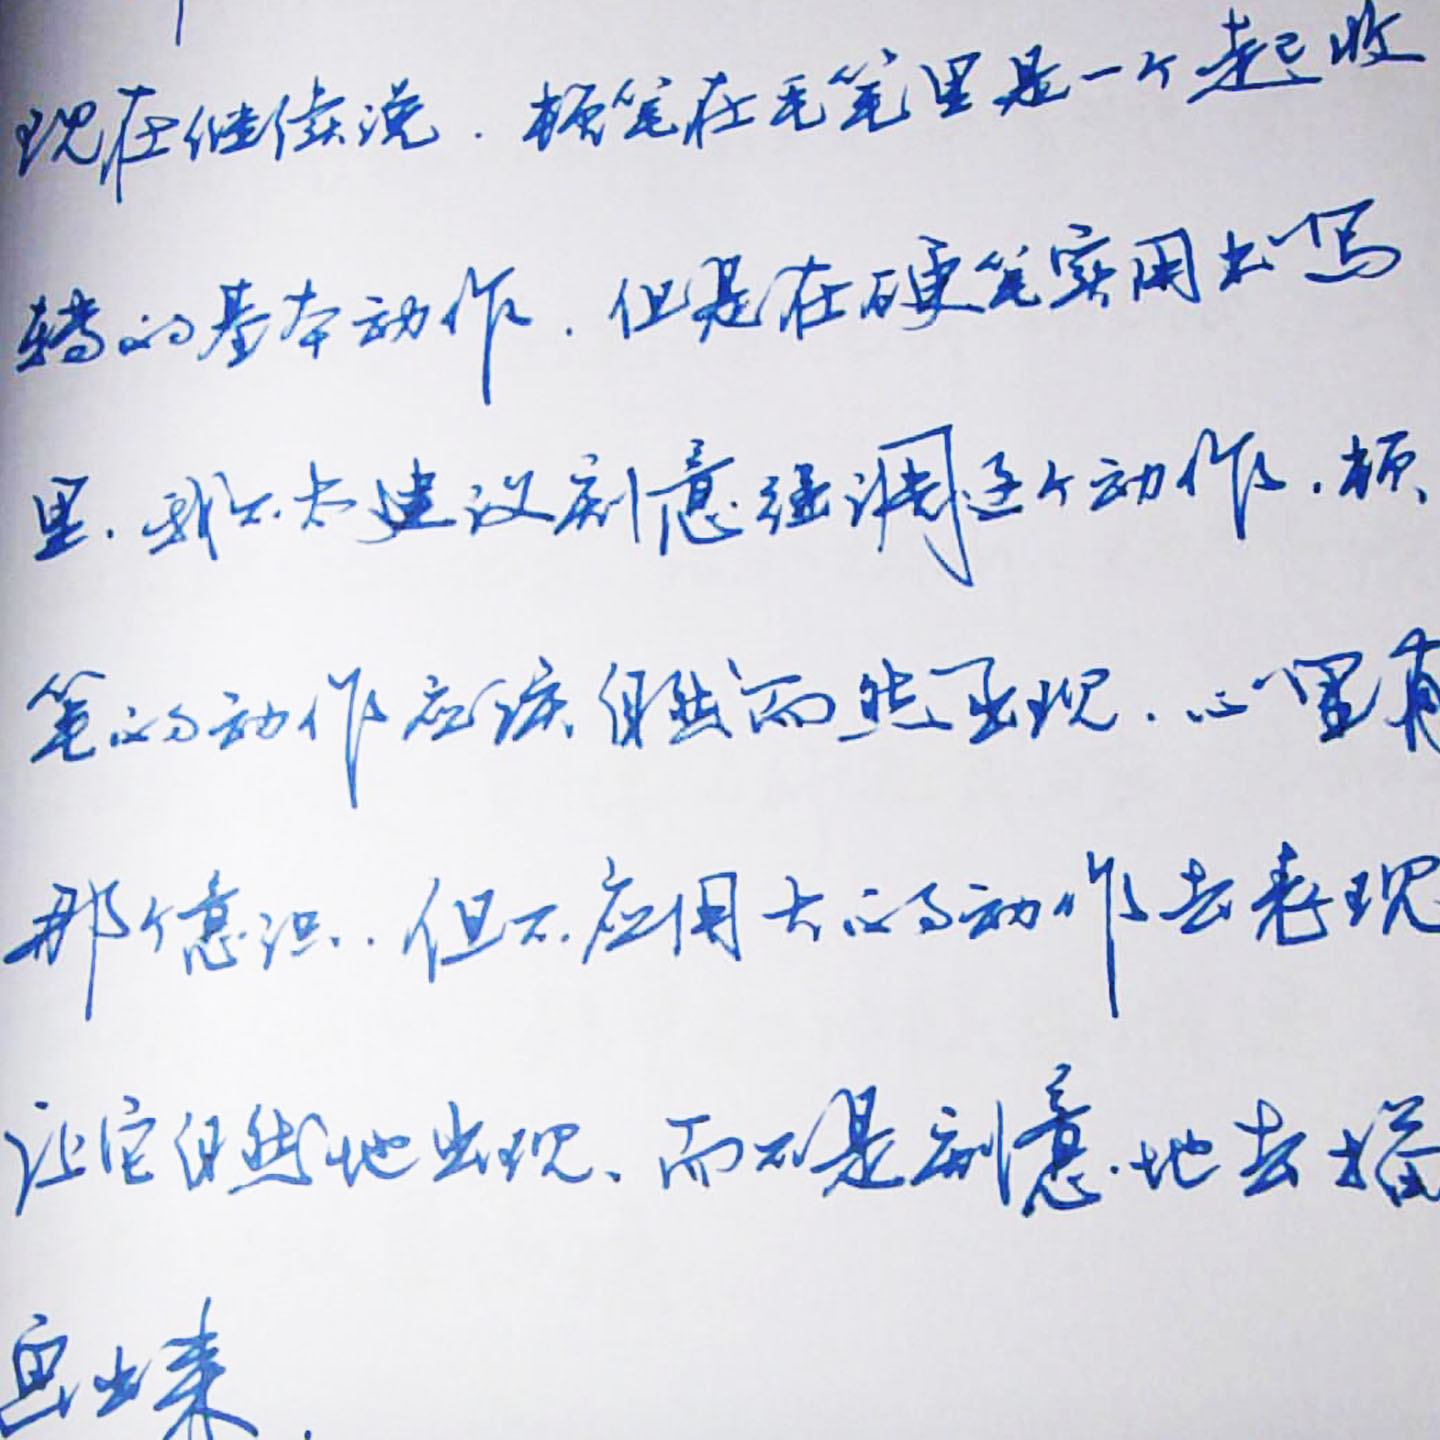 现在继续说.顿笔在毛笔里是一个起收
转的基本动作.但是在硬笔实用书写
里.我不太建议刻意强调这个动作.顿
笔的动作应该自然而然出现.心里有
那个意识.但不应用大的动作去表现
让它自然地出现、而不是刻意地去描
画出来.